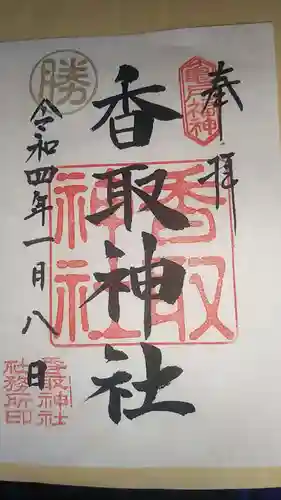 奉拝
亀戸福神
香取神社
香取神社
勝
令和四年一月八日
香取神社
社務所印